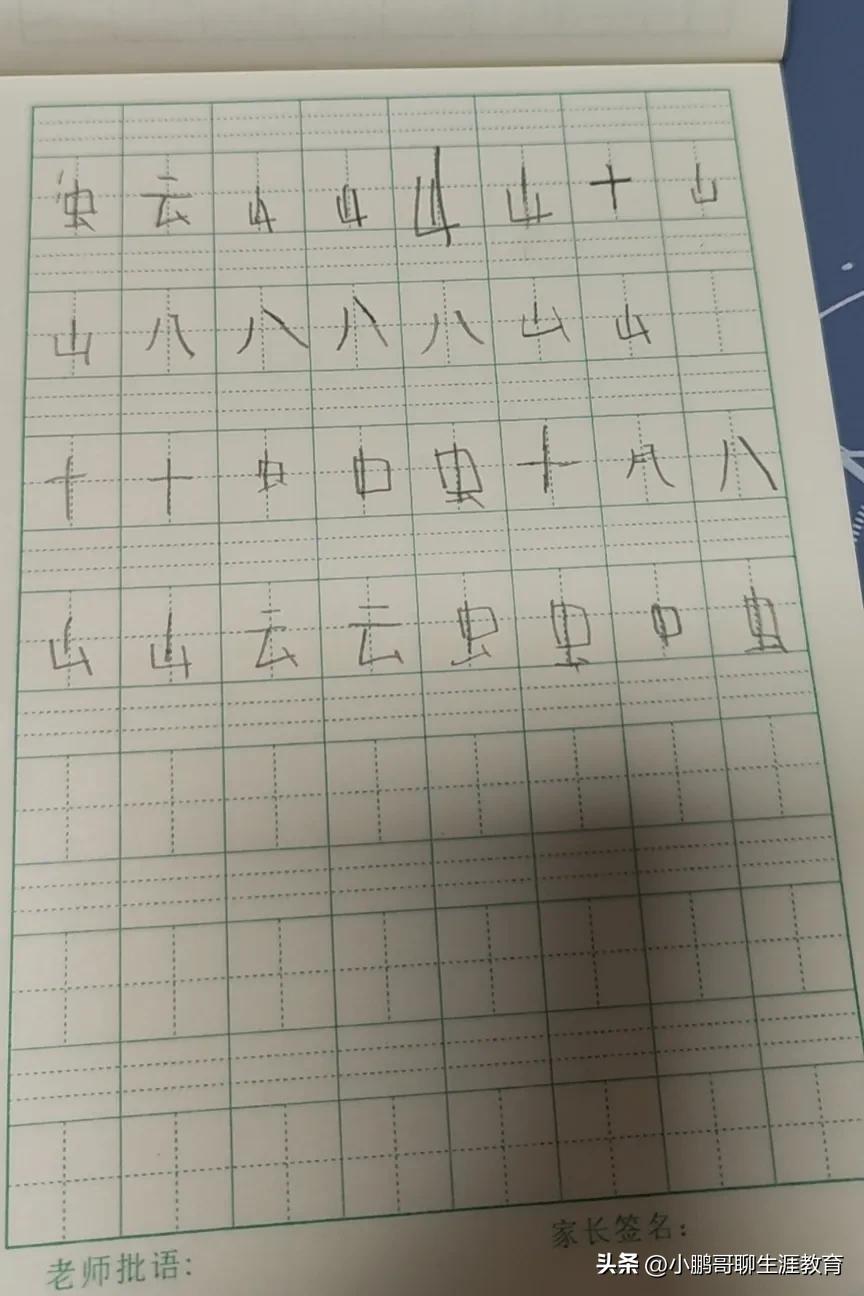 虫 云 山 山 山 山 十 山
山 八 八 八 八 山 山
十 十 虫 口 虫 十 八 八
山 山 云 云 虫 虫 虫
家长签名：
老师批语：
头条 @小鹏哥聊生涯教育